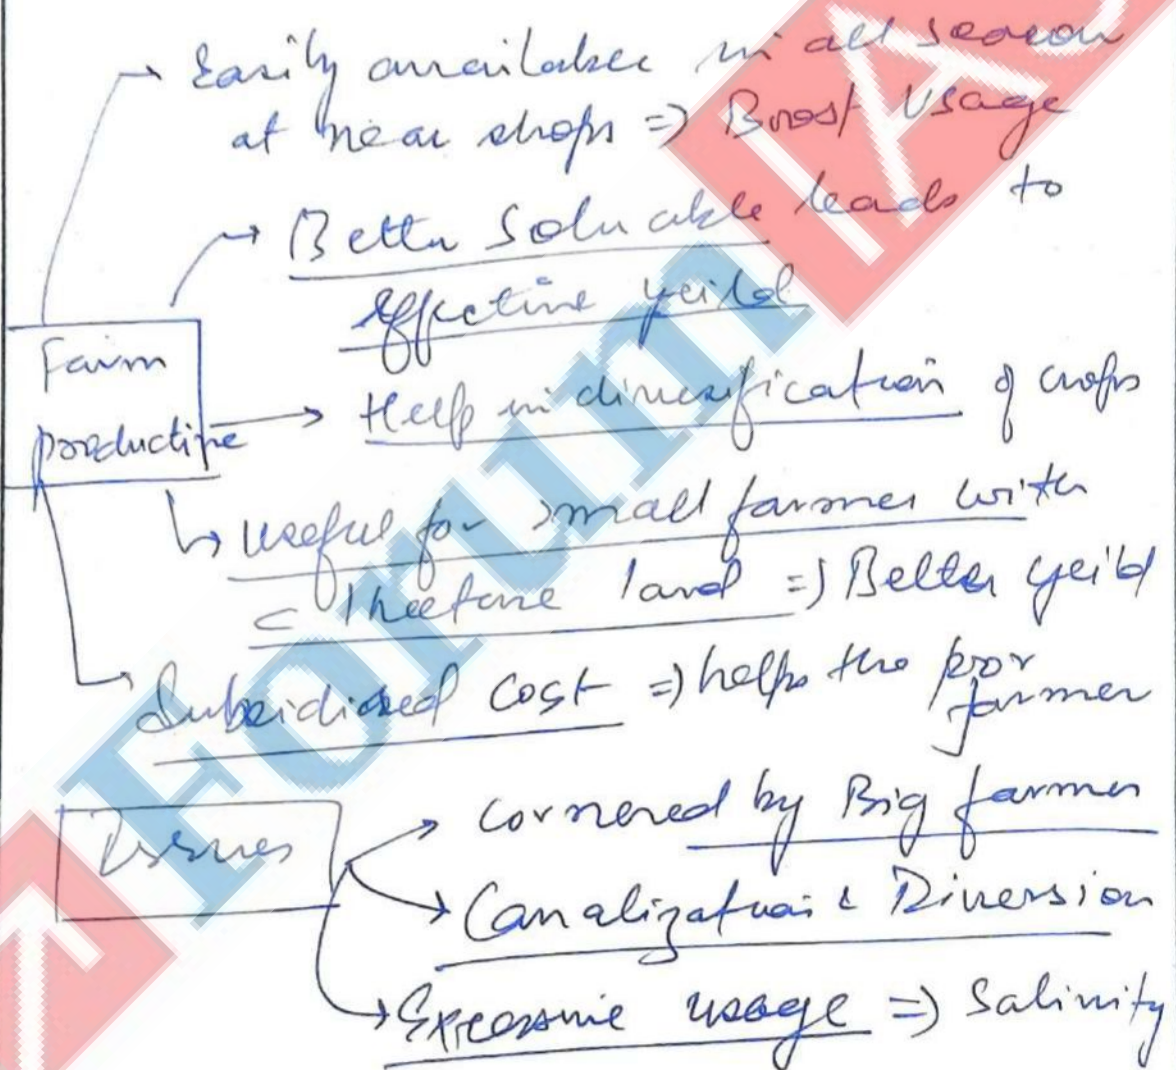 → Easily available in all season
at near shops => Boost Usage
→ Better Soluable leads to
effective yeild
Farm
productive
→ Help in diversification of crops
→ useful for small farmer with
< land => Better yeild
Subsidised cost => helps the poor
farmer
Issues
→ cornered by Big farmer
→ Canalization & Diversion
→ Excessive usage => Salinity
Forum IAS